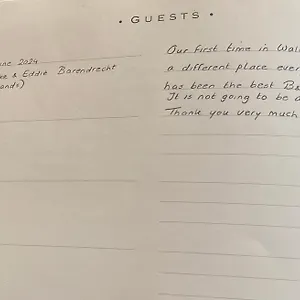 • GUESTS •
2024
& Eddie Barendrecht
Our first time in
a different place
has been the best
It is not going to be
Thank you very much